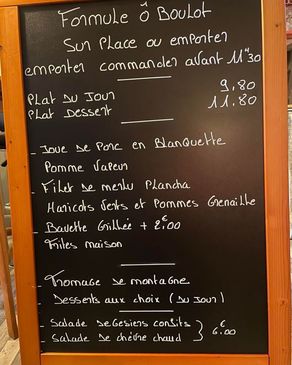 Formule Ô Boulot
Sur Place ou emporter
emporter commander avant 11"30
Plat du Jour 9,80
Plat Dessert 11.80
- Joue de Porc en Blanquette
Pomme Vapeur
- Filet de merlu Plancha
Haricots Verts et Pommes Grenaille
- Bavette Grillée + 2€00
Frites maison
- Fromage de montagne
- Desserts aux choix (du Jour)
- Salade de Gesiers confits
- Salade de chèvre chaud } 6€00